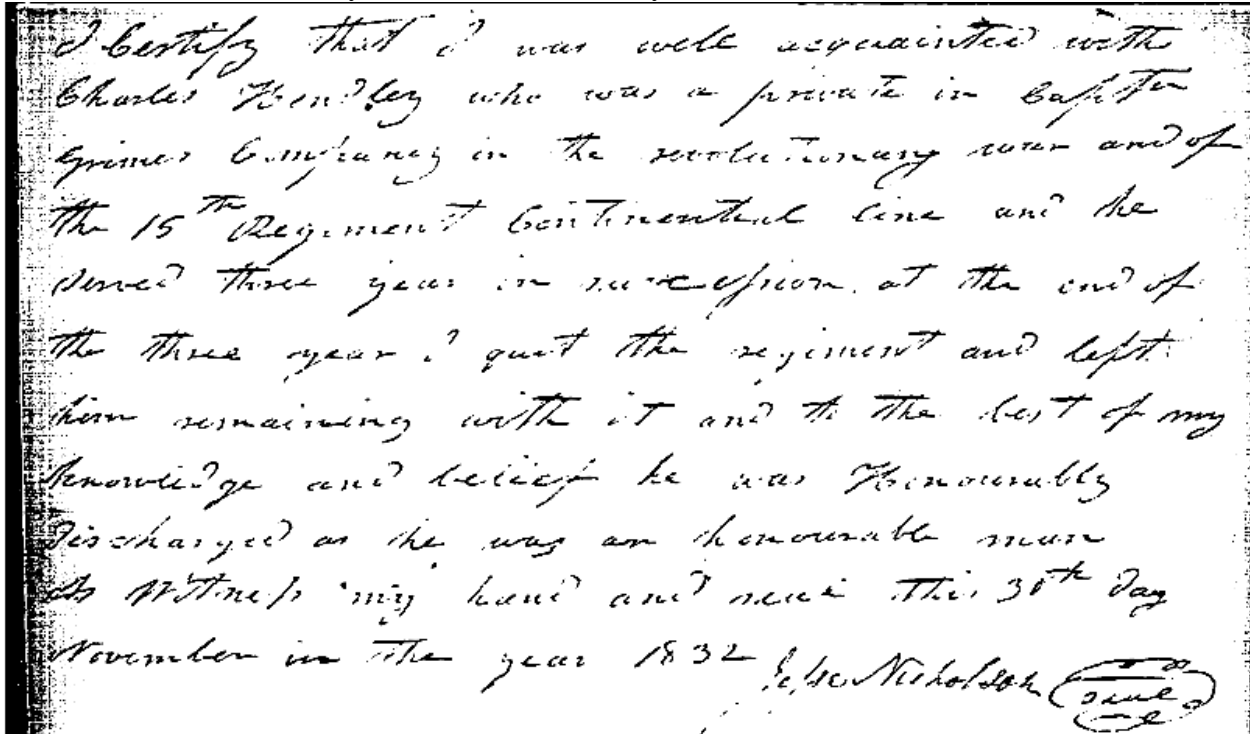 I Certify that I was well acquainted with
Charles Hendley who was a private in Capt
Grimes Company in the revolutionary war and of
the 15th Regiment Continental line and he
served three year in succession at the end of
the three year I quit the regiment and left
him remaining with it and to the best of my
knowledge and belief he was Honourably
discharged as he was an honourable man
As Witness my hand and seal this 30th day
November in the year 1832
Jesse Nicholson seal